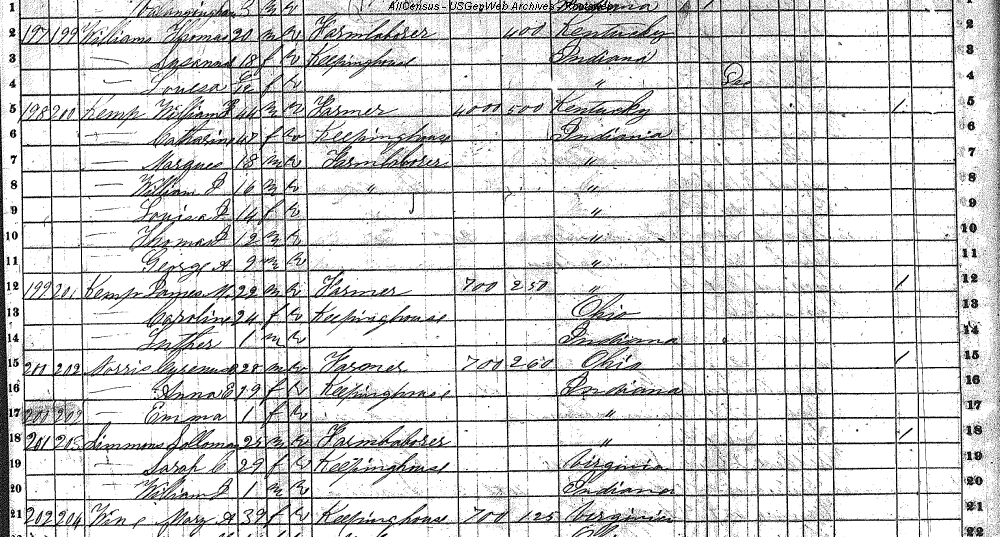 AllCensus - USGenWeb Archives
1 3 1
2 197 199 Williams Thomas 20 m W Farmlaborer 400 Kentucky 2
3 — 18 f W Keepinghouse Indiana 3
4 — Louesa f W " 4
5 198 200 Kemp William 44 m W Farmer 4000 500 Kentucky 1 5
6 — Catharine 47 f W Keepinghouse Indiania 6
7 — Marques 18 m W Farmlaborer " 7
8 — William P 16 m W " " 8
9 — Louisa 14 f W " 9
10 — Thomas 12 m W " 10
11 — George A 9 m W " 11
12 199 201 Kemp James M. 22 m W Farmer 700 250 " 1 12
13 — Caroline 24 f W Keepinghouse Ohio 13
14 — Luther 1 m W Indiana 14
15 201 202 Norris 28 m W Farmer 700 260 Ohio 1 15
16 — Anna E 19 f W Keepinghouse Indiana 16
17 — Emma 1 f W " 17
18 201 203 Simmons Solloman 25 m W Farmlaborer " 1 18
19 — Sarah C 29 f W Keepinghouse Virginia 19
20 — William 1 m W Indiana 20
21 202 204 Mary A 39 f W Keepinghouse 700 125 Virginia 21
22